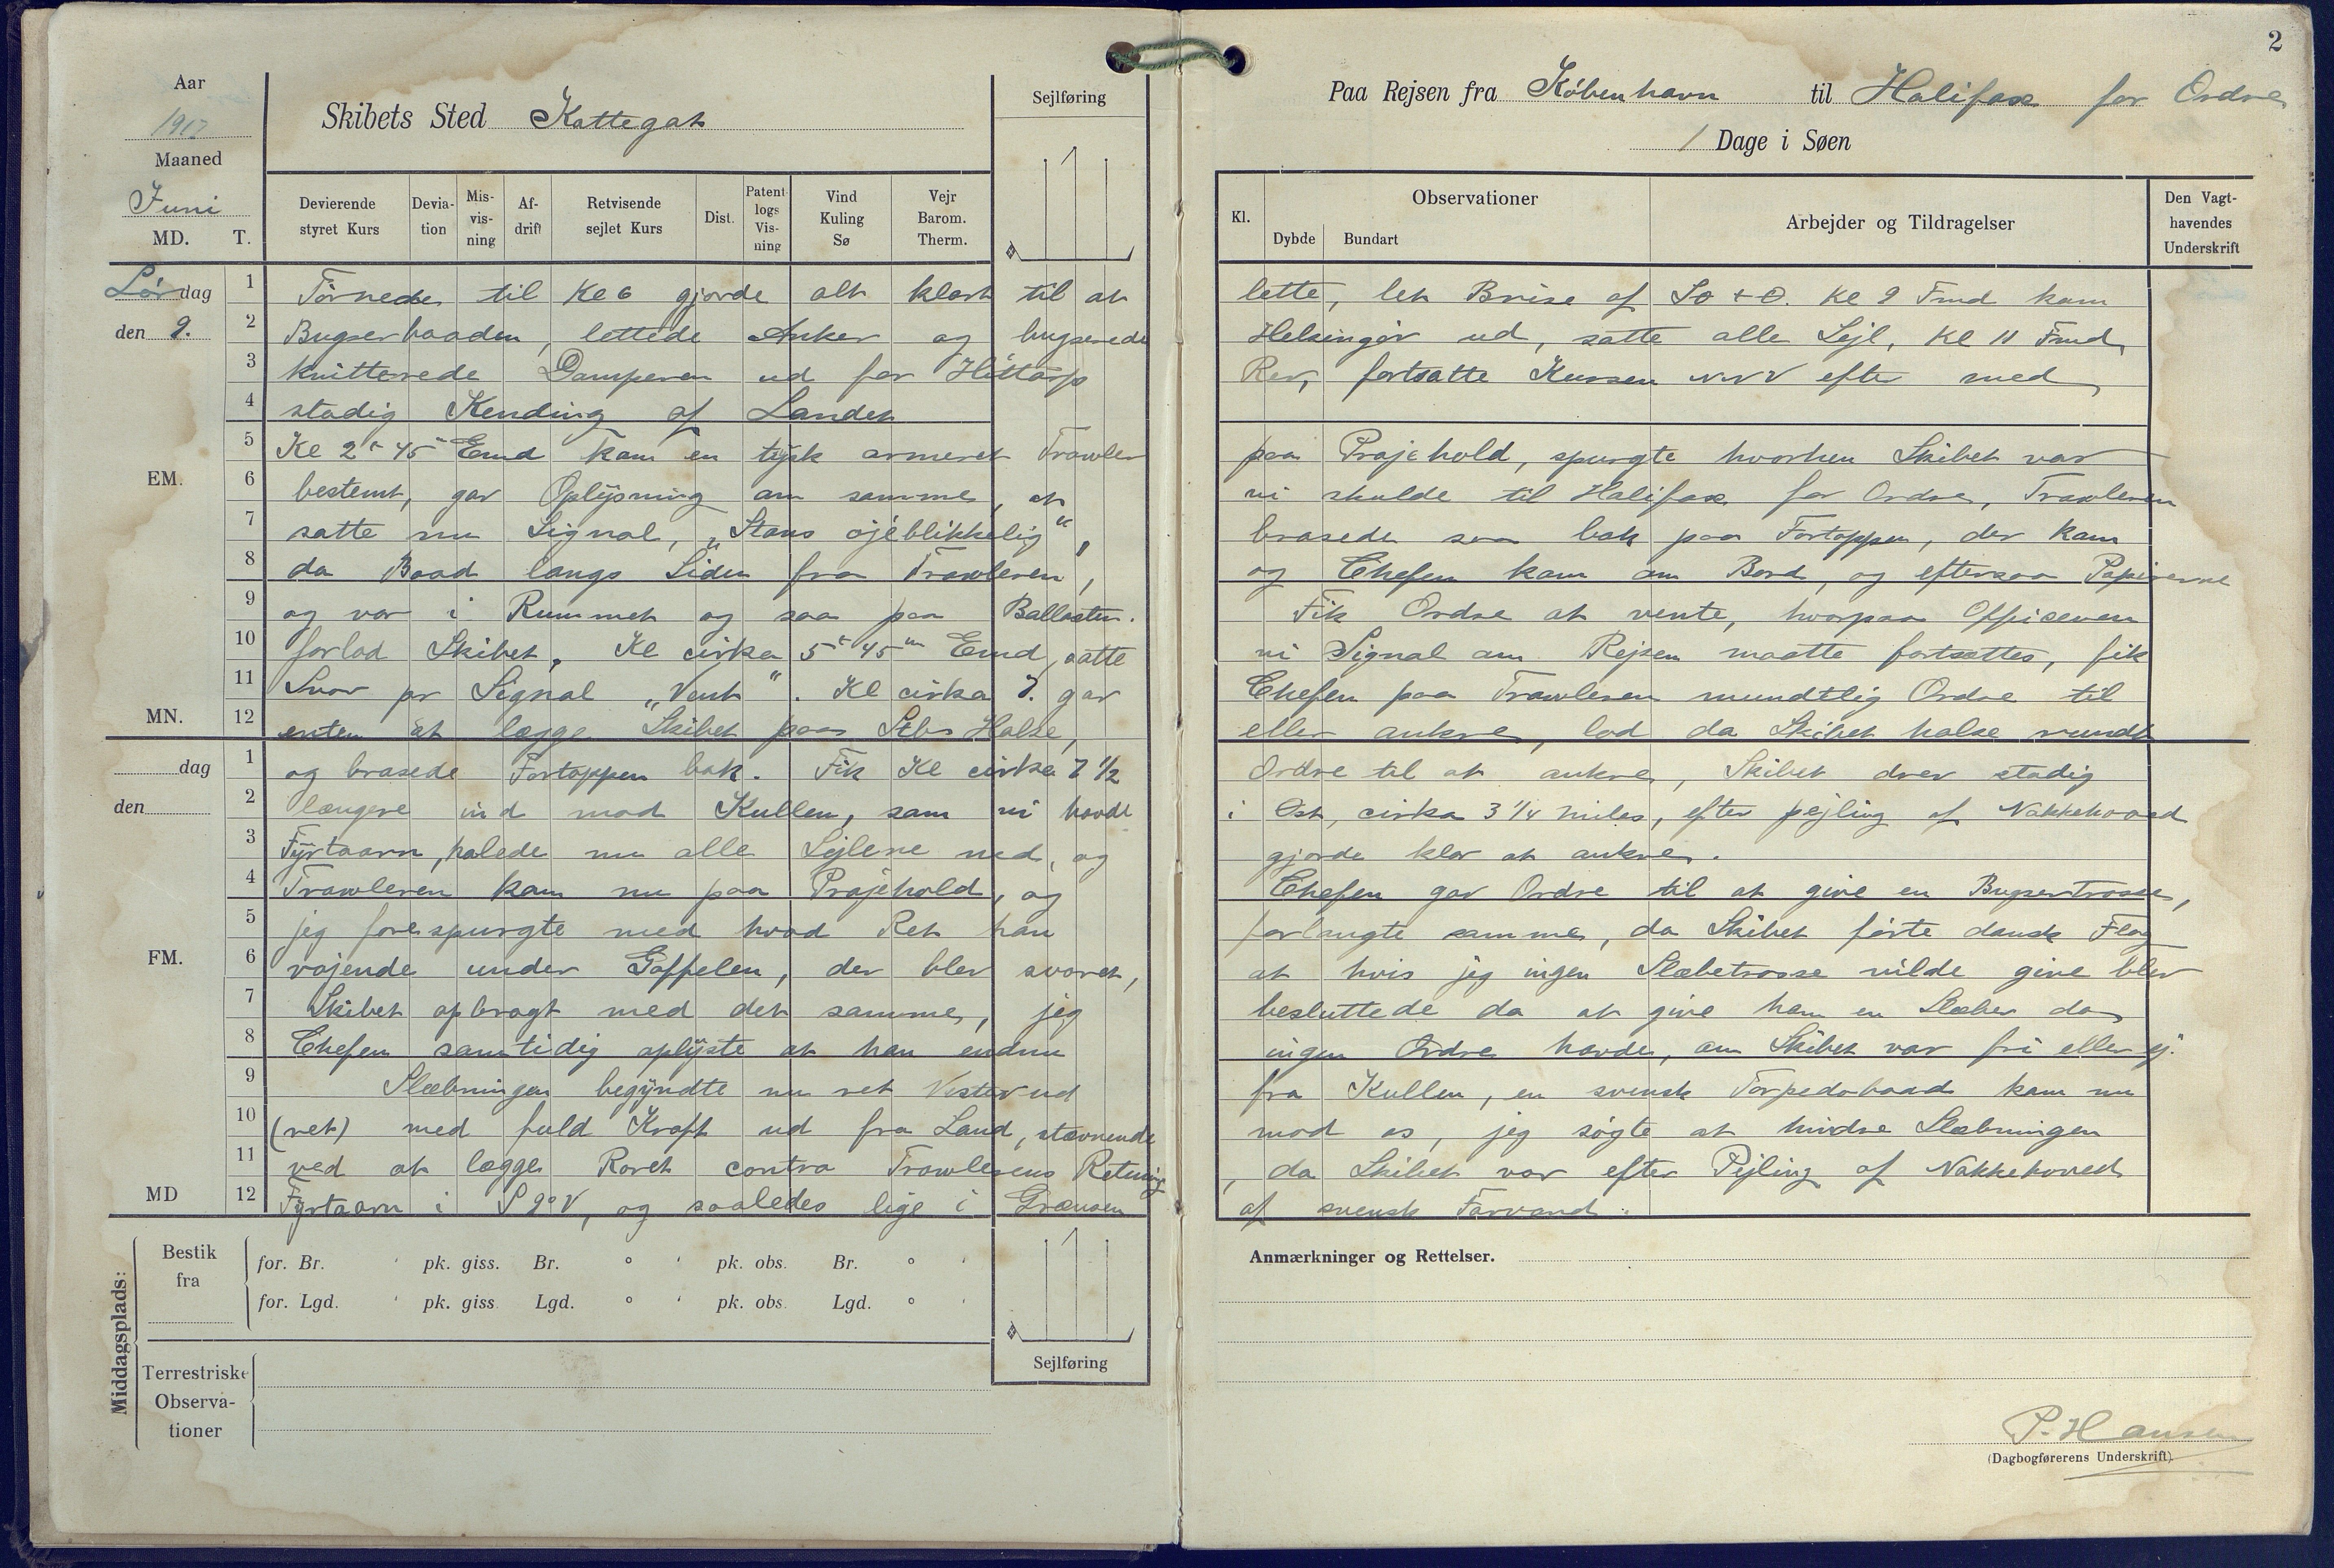 Aar
1917
Maaned
Juni
MD. T.
Skibets Sted Kattegat
Sejlføring
Devierende styret Kurs
Deviation
Misvisning
Afdrift
Retvisende sejlet Kurs
Dist.
Patent logs Visning
Vind Kuling Sø
Vejr Barom. Therm.
Lørdag
den 9.
EM.
MN.
dag
den
FM.
MD
1 Törnede til Kl 6 gjorde alt klart til at
2 Bugserbaaden, lettede Anker og bugserede
3 knitterede Damperen ud for Hittarp
4 stadig Kending af Landet
5 Kl 2 t 45 Emd kam en tysk armeret Trawler
6 bestemt, gav Oplysning om samme, at
7 satte nu Signal, „Stans öjeblikkelig",
8 da Baad langs Siden fra Trawleren,
9 og var i Rummet og saa paa Ballasten.
10 forlod Skibet, Kl cirka 5 t 45 m Emd, satte
11 Svar pr Signal „Vent". Kl cirka 7. gav
12 enten at lægge Skibet paa Stbs Halse,
1 og brasede Fortoppen bak. Fik Kl cirka 7 1/2
2 længere ind mod Kullen, sam vi havde
3 Fyrtaarn, halede nu alle Sejlene ned, og
4 Trawleren kam nu paa Prajehold, og
5 jeg forespurgte med hvad Ret han
6 vajende under Gaffelen, der blev svaret,
7 Skibet opbragt med det samme, jeg
8 Chefen samtidig oplyste at han endnu
9 Slæbningen begyndte nu ret Vester ud
10 (ret) med fuld Kraft ud fra Land, stævnende
11 ved at lægge Roret contra Trawlerens Retning
12 Fyrtaarn i S 9° V, og saaledes lige i Grænsen
Middagsplads:
Bestik fra
for. Br. ' pk. giss. Br. ° ' pk. obs. Br. ° '
for. Lgd. ' pk. giss. Lgd. ° ' pk. obs. Lgd. ° '
Terrestriske Observationer
Sejlføring
2
Paa Rejsen fra Köbenhavn til Halifax for Ordre
1 Dage i Søen
Kl.
Observationer
Dybde Bundart
Arbejder og Tildragelser
Den Vagthavendes Underskrift
lette, let Brise af So + O. Kl 9 Fmd kam
Helsingör ud, satte alle Sejl, Kl 11 Fmd,
Rev, fortsatte Kursen NNV efter med
paa Prajehold, spurgte hvorhen Skibet var
vi skulde til Halifax for Ordre, Trawleren
brasede saa bak paa Fortoppen, der kam
og Chefen kam om Bord, og eftersaa Papirerne
Fik Ordre at vente, hvorpaa Officeren
vi Signal om Rejsen maatte fortsættes, fik
Chefen paa Trawleren mundtlig Ordre til
eller ankre, lod da Skibet halse rundt
Ordre til at ankre, Skibet drev stadig
i Öst, cirka 3 1/4 Miles, efter pejling af Nakkehoved
gjorde klar at ankre.
Chefen gav Ordre til at give en Bugsertrosse,
forlangte samme, da Skibet förte dansk Flag
at hvis jeg ingen Slæbetrosse vilde give blev
besluttede da at give ham en Slæber da
ingen Ordre havde, om Skibet var fri eller ej.
fra Kullen, en svensk Torpedobaad kam nu
mod os, jeg sögte at hindre Slæbningen
, da Skibet var efter Pejling af Nakkehoved
af svensk Farvand.
Anmærkninger og Rettelser.
P. Hansen
(Dagbogførerens Underskrift)